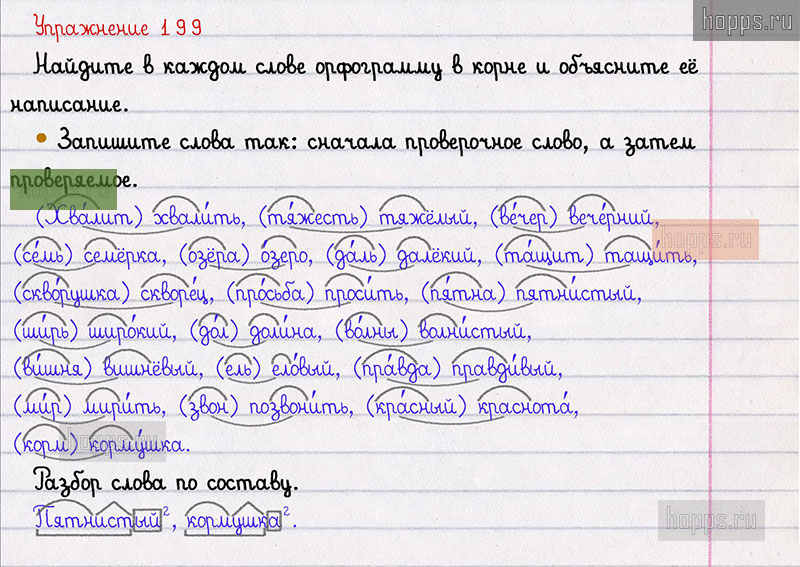 Упражнение 199
hopps.ru
Найдите в каждом слове орфограмму в корне и объясните её
написание.
• Запишите слова так: сначала проверочное слово, а затем
проверяемое.
(Хва́лит) хвали́ть, (тя́жесть) тяжёлый, (ве́чер) вече́рний,
hopps.ru
(се́мь) семёрка, (озёра) о́зеро, (да́ль) далёкий, (та́щит) тащи́ть,
(скво́рушка) скворе́ц, (про́сьба) проси́ть, (пя́тна) пятни́стый,
(ши́рь) широ́кий, (до́л) доли́на, (во́лны) волни́стый,
(ви́шня) вишнёвый, (ель) ело́вый, (пра́вда) правди́вый,
(ми́р) мири́ть, (звон) позвони́ть, (кра́сный) краснота́,
(корм) корму́шка.
hopps.ru
Разбор слова по составу.
Пятнистый², кормушка².
hopps.ru